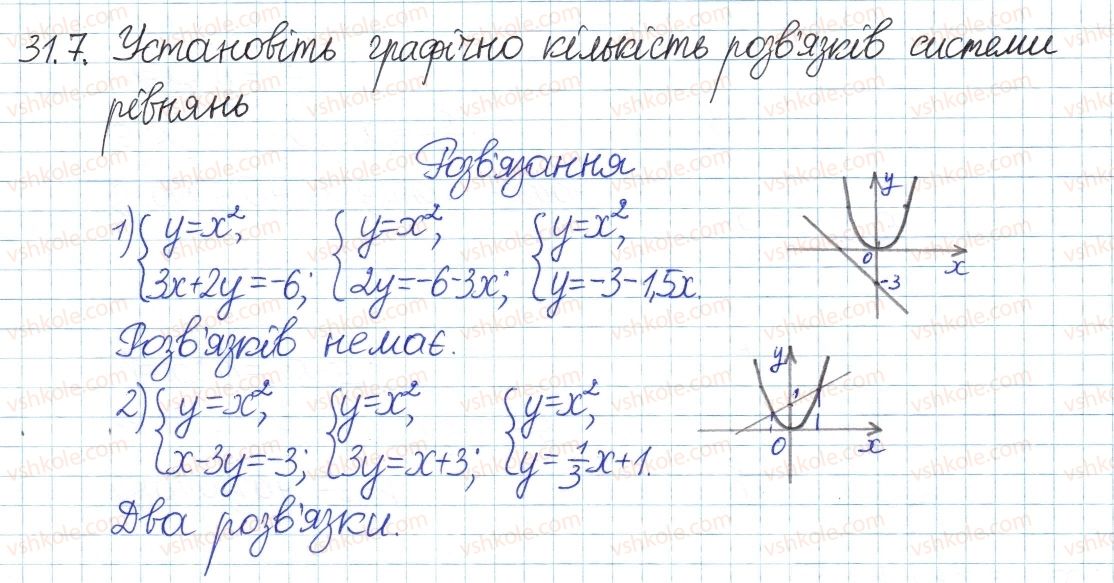 31.7. Установіть графічно кількість розв'язків системи
рівнянь
Розв'язання
1) { y=x², 3x+2y=-6; { y=x², 2y=-6-3x; { y=x², y=-3-1,5x.
y
0
x
-3
Розв'язків немає.
2) { y=x², x-3y=-3; { y=x², 3y=x+3; { y=x², y=1/3x+1.
y
1
0
x
Два розв'язки.